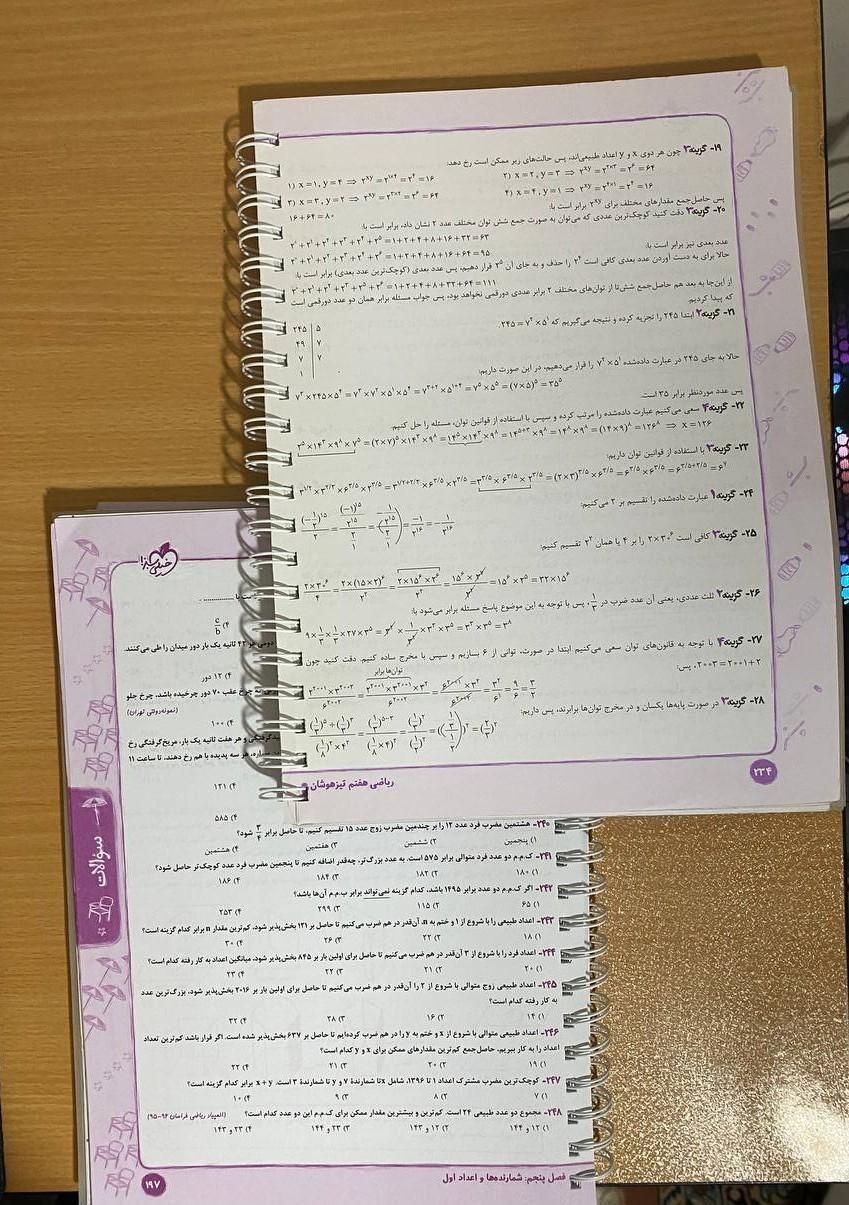 ۱۹- گزینه۳ چون هر دوی x و y اعداد طبیعی‌اند، پس حالت‌های زیر ممکن است رخ دهد:
۱) x = ۱, y = ۴ ⇒ ۲^xy = ۲^۱×۴ = ۲^۴ = ۱۶
۲) x = ۲, y = ۳ ⇒ ۲^xy = ۲^۲×۳ = ۲^۶ = ۶۴
۳) x = ۳, y = ۲ ⇒ ۲^xy = ۲^۳×۲ = ۲^۶ = ۶۴
۴) x = ۴, y = ۱ ⇒ ۲^xy = ۲^۴×۱ = ۲^۴ = ۱۶
پس حاصل‌جمع مقدارهای مختلف برای ۲^xy برابر است با:
۱۶ + ۶۴ = ۸۰
۲۰- گزینه۳ دقت کنید کوچک‌ترین عددی که می‌توان به صورت جمع شش توان مختلف عدد ۲ نشان داد، برابر است با:
۲^۰ + ۲^۱ + ۲^۲ + ۲^۳ + ۲^۴ + ۲^۵ = ۱ + ۲ + ۴ + ۸ + ۱۶ + ۳۲ = ۶۳
عدد بعدی نیز برابر است با:
۲^۰ + ۲^۱ + ۲^۲ + ۲^۳ + ۲^۴ + ۲^۶ = ۱ + ۲ + ۴ + ۸ + ۱۶ + ۶۴ = ۹۵
حالا برای به دست آوردن عدد بعدی کافی است ۲^۴ را حذف و به جای آن ۲^۵ قرار دهیم، پس عدد بعدی (کوچک‌ترین عدد بعدی) برابر است با:
۲^۰ + ۲^۱ + ۲^۲ + ۲^۳ + ۲^۵ + ۲^۶ = ۱ + ۲ + ۴ + ۸ + ۳۲ + ۶۴ = ۱۱۱
از این‌جا به بعد هم حاصل‌جمع شش‌تا از توان‌های مختلف ۲ برابر عددی دورقمی نخواهد بود، پس جواب مسئله برابر همان دو عدد دورقمی است
که پیدا کردیم.
۲۱- گزینه۲ ابتدا ۲۴۵ را تجزیه کرده و نتیجه می‌گیریم که ۲۴۵ = ۷^۲ × ۵^۱.
۲۴۵ | ۵
۴۹ | ۷
۷ | ۷
۱
حالا به جای ۲۴۵ در عبارت داده‌شده ۷^۲ × ۵^۱ را قرار می‌دهیم، در این صورت داریم:
۷^۳ × ۲۴۵ × ۵^۴ = ۷^۳ × ۷^۲ × ۵^۱ × ۵^۴ = ۷^۳+۲ × ۵^۱+۴ = ۷^۵ × ۵^۵ = (۷ × ۵)^۵ = ۳۵^۵
پس عدد موردنظر برابر ۳۵ است.
۲۲- گزینه۴ سعی می‌کنیم عبارت داده‌شده را مرتب کرده و سپس با استفاده از قوانین توان، مسئله را حل کنیم.
۲^۵ × ۱۴^۳ × ۹^۸ × ۷^۵ = (۲×۷)^۵ × ۱۴^۳ × ۹^۸ = ۱۴^۵ × ۱۴^۳ × ۹^۸ = ۱۴^۵+۳ × ۹^۸ = ۱۴^۸ × ۹^۸ = (۱۴×۹)^۸ = ۱۲۶^۸ ⇒ x = ۱۲۶
۲۳- گزینه۳ با استفاده از قوانین توان داریم:
۳^۱/۲ × ۳^۲/۳ × ۶^۳/۵ × ۲^۳/۵ = ۳^۱/۲+۲/۳ × ۶^۳/۵ × ۲^۳/۵ = ۳^۳/۵ × ۶^۳/۵ × ۲^۳/۵ = (۲×۳)^۳/۵ × ۶^۳/۵ = ۶^۳/۵ × ۶^۳/۵ = ۶^۳/۵+۳/۵ = ۶^۷
۲۴- گزینه۱ عبارت داده‌شده را تقسیم بر ۲ می‌کنیم:
(-۱/۲)^۱۵ / ۲ = ((-۱)^۱۵ / ۲^۱۵) / (۲/۱) = (-۱/۲^۱۵) / (۲/۱) = -۱/۲^۱۶ = -۱/۲^۱۶
۲۵- گزینه۳ کافی است ۲ × ۳۰^۶ را بر ۴ یا همان ۲^۲ تقسیم کنیم:
۲×۳۰^۶ / ۴ = ۲×(۱۵×۲)^۶ / ۲^۲ = ۲×۱۵^۶×۲^۶ / ۲^۲ = ۱۵^۶ × ۲^۷ / ۲^۲ = ۱۵^۶ × ۲^۵ = ۳۲ × ۱۵^۶
۲۶- گزینه۲ ثلث عددی، یعنی آن عدد ضرب در ۱/۳، پس با توجه به این موضوع پاسخ مسئله برابر می‌شود با:
۹ × ۱/۳ × ۱/۳ × ۲۷ × ۳^۵ = ۳^۲ × ۱/۳^۲ × ۳^۳ × ۳^۵ = ۳^۳ × ۳^۵ = ۳^۸
۲۷- گزینه۴ با توجه به قانون‌های توان سعی می‌کنیم ابتدا در صورت، توانی از ۶ بسازیم و سپس با مخرج ساده کنیم. دقت کنید چون
۲۰۰۳ = ۲۰۰۱ + ۲، پس:
توان‌ها برابر
۲^۲۰۰۱ × ۳^۲۰۰۳ / ۶^۲۰۰۲ = ۲^۲۰۰۱ × ۳^۲۰۰۱ × ۳^۲ / ۶^۲۰۰۲ = ۶^۲۰۰۱ × ۳^۲ / ۶^۲۰۰۲ = ۳^۲ / ۶^۱ = ۹/۶ = ۳/۲
۲۸- گزینه۳ در صورت پایه‌ها یکسان و در مخرج توان‌ها برابرند، پس داریم:
(۱/۳)^۵ ÷ (۱/۳)^۳ / (۱/۸)^۲ × ۴^۲ = (۱/۳)^۵−۳ / (۱/۸ × ۴)^۲ = (۱/۳)^۲ / (۱/۲)^۲ = ((۱/۳)/(۱/۲))^۲ = (۲/۳)^۲
ریاضی هفتم تیزهوشان
۲۳۴
خیلی سبز
۴) c/b
۴۲ ثانیه یک بار دور میدان را طی می‌کنند.
۴) ۱۲ دور
چرخ عقب ۷۰ دور چرخیده باشد، چرخ جلو
(نمونه‌دولتی تهران)
۴) ۱۰۰
و هر هفت ثانیه یک بار، مریخ‌گرفتگی رخ
هر سه پدیده با هم رخ دهند، تا ساعت ۱۱
۴) ۱۲۱
۴) ۵۸۵
سؤالات
۲۴۰- هشتمین مضرب فرد عدد ۱۲ را بر چندمین مضرب زوج عدد ۱۵ تقسیم کنیم، تا حاصل برابر ۳/۴ شود؟
۱) پنجمین ۲) ششمین ۳) هفتمین ۴) هشتمین
۲۴۱- ک.م.م دو عدد فرد متوالی برابر ۵۷۵ است. به عدد بزرگ‌تر، چه‌قدر اضافه کنیم تا پنجمین مضرب فرد عدد کوچک‌تر حاصل شود؟
۱) ۱۸۰ ۲) ۱۸۲ ۳) ۱۸۴ ۴) ۱۸۶
۲۴۲- اگر ک.م.م دو عدد برابر ۱۴۹۵ باشد، کدام گزینه نمی‌تواند برابر ب.م.م آن‌ها باشد؟
۱) ۶۵ ۲) ۱۱۵ ۳) ۲۹۹ ۴) ۲۵۳
۲۴۳- اعداد طبیعی را با شروع از ۱ و ختم به n، آن‌قدر در هم ضرب می‌کنیم تا حاصل بر ۱۲۱ بخش‌پذیر شود، کم‌ترین مقدار n برابر کدام گزینه است؟
۱) ۱۸ ۲) ۲۲ ۳) ۲۶ ۴) ۳۰
۲۴۴- اعداد فرد را با شروع از ۳ آن‌قدر در هم ضرب می‌کنیم تا حاصل برای اولین بار بر ۸۴۵ بخش‌پذیر شود، میانگین اعداد به کار رفته کدام است؟
۱) ۲۰ ۲) ۲۱ ۳) ۲۲ ۴) ۲۳
۲۴۵- اعداد طبیعی زوج متوالی با شروع از ۲ را آن‌قدر در هم ضرب می‌کنیم تا حاصل برای اولین بار بر ۲۰۱۶ بخش‌پذیر شود، بزرگ‌ترین عدد
به کار رفته کدام است؟
۱) ۱۴ ۲) ۱۶ ۳) ۲۸ ۴) ۳۲
۲۴۶- اعداد طبیعی متوالی با شروع از x و ختم به y را در هم ضرب کرده‌ایم تا حاصل بر ۶۳۷ بخش‌پذیر شده است. اگر قرار باشد کم‌ترین تعداد
اعداد را به کار ببریم، حاصل‌جمع کم‌ترین مقدارهای ممکن برای x و y کدام است؟
۱) ۱۹ ۲) ۲۰ ۳) ۲۱ ۴) ۲۲
۲۴۷- کوچک‌ترین مضرب مشترک اعداد ۱ تا ۱۳۹۶، شامل x تا شمارندهٔ ۷ و y تا شمارندهٔ ۳ است. x + y برابر کدام گزینه است؟
۱) ۷ ۲) ۸ ۳) ۹ ۴) ۱۰
۲۴۸- مجموع دو عدد طبیعی ۲۴ است. کم‌ترین و بیشترین مقدار ممکن برای ک.م.م این دو عدد کدام است؟ (المپیاد ریاضی خراسان ۹۴-۹۵)
۱) ۱۲ و ۱۴۴ ۲) ۱۲ و ۱۴۳ ۳) ۲۳ و ۱۴۴ ۴) ۲۳ و ۱۴۳
فصل پنجم: شمارنده‌ها و اعداد اول
۱۹۷